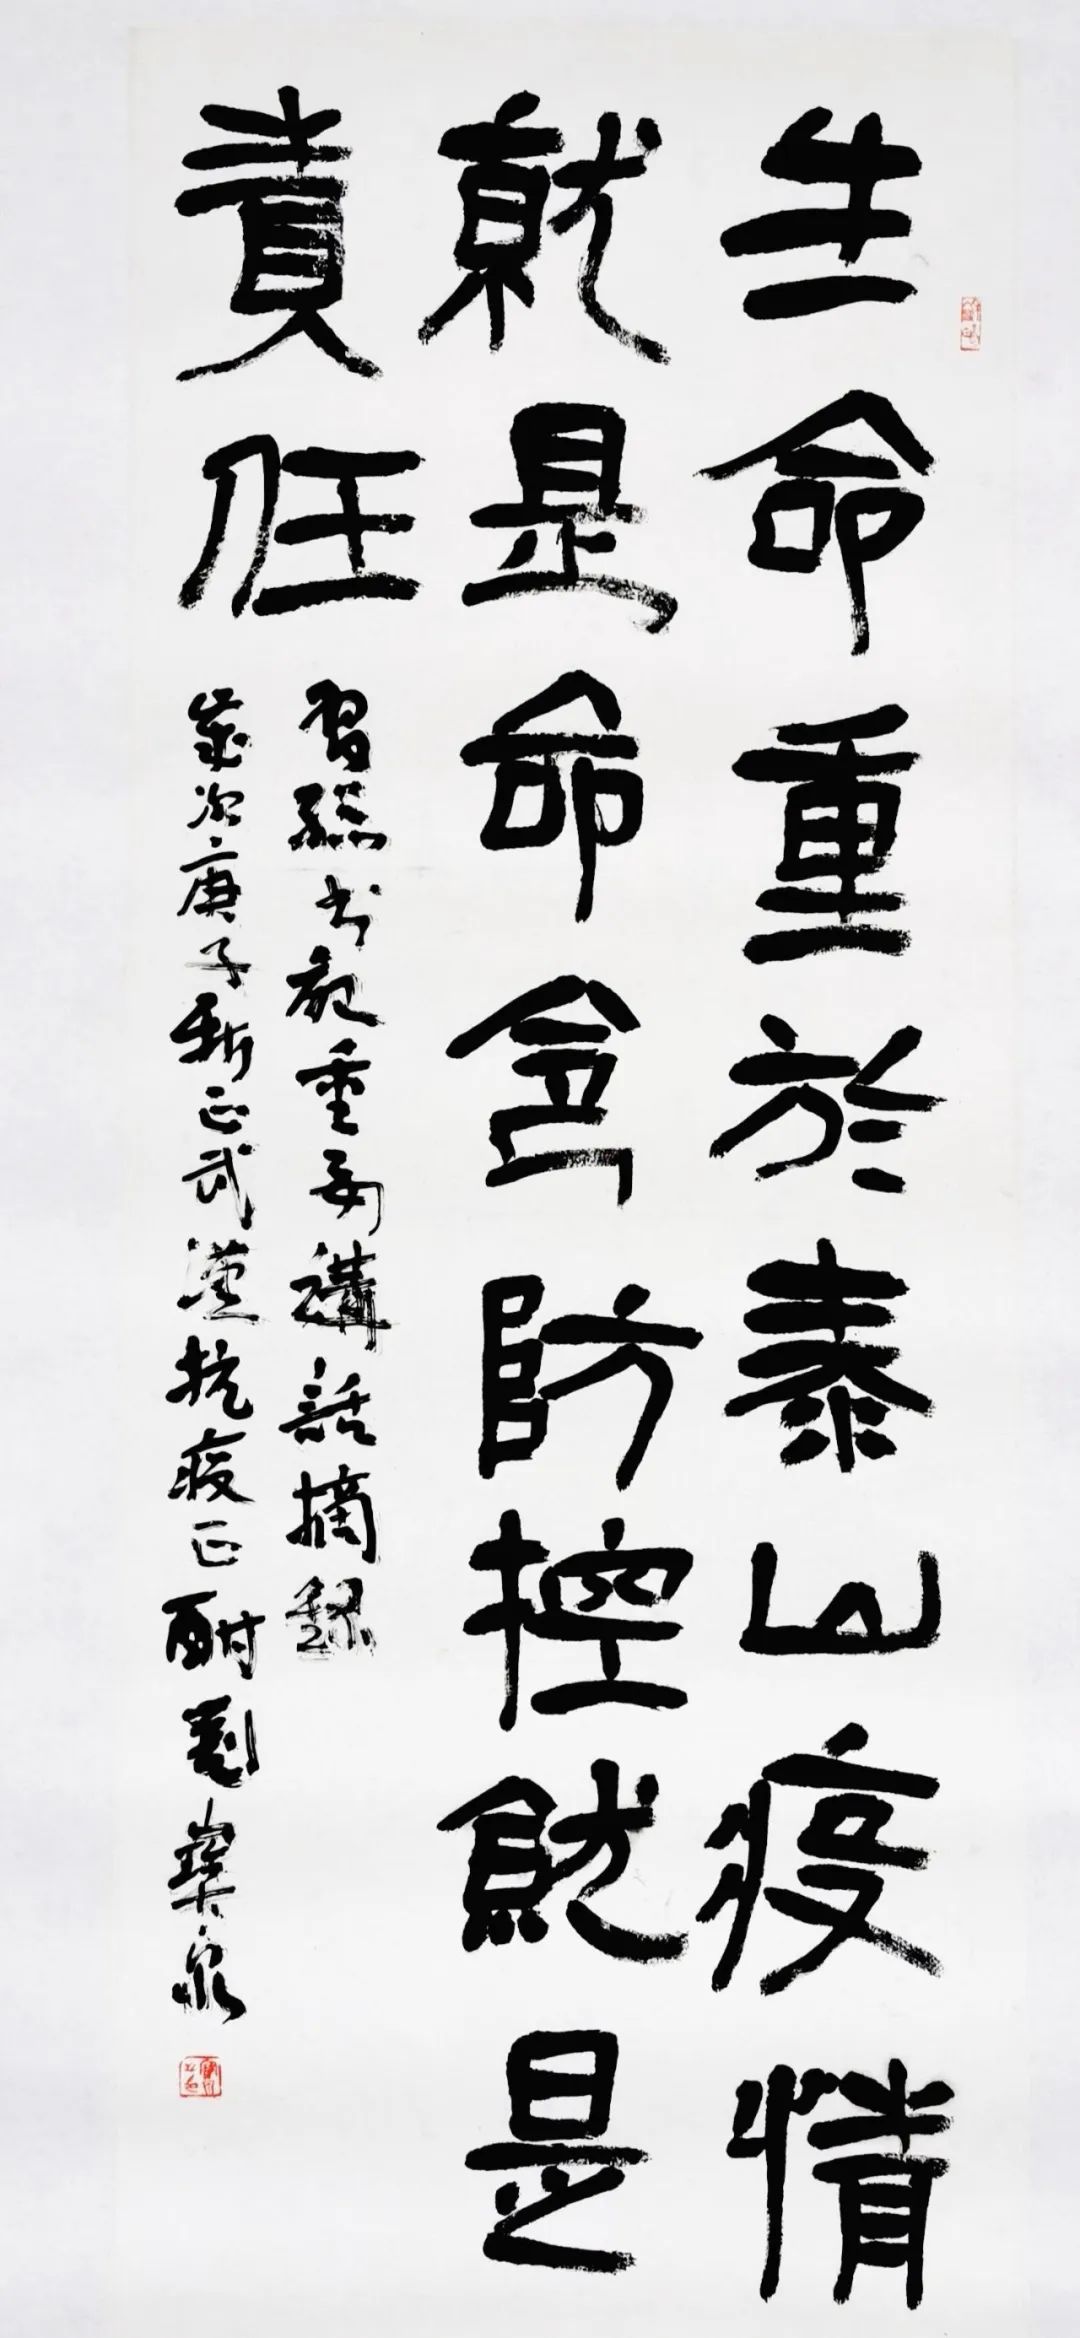 生命重於泰山疫情
就是命令防控就是
責任
習總书記重要講話摘録
歲次庚子新正武漢抗疫正酣劉 泉